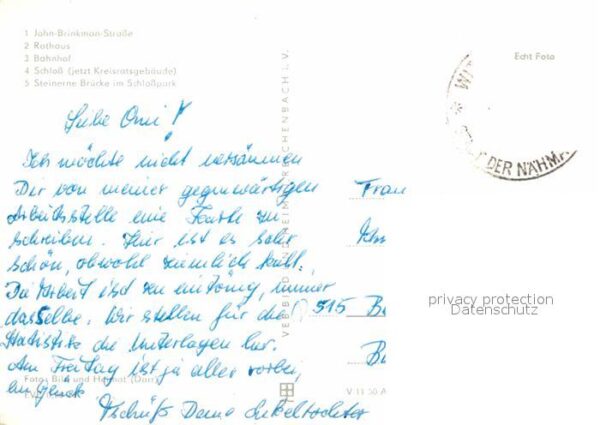 1 John-Brinkman-Straße
2 Rathaus
3 Bahnhof
4 Schloß (jetzt Kreisratsgebäude)
5 Steinerne Brücke im Schloßpark
Echt Foto
Liebe Omi!
Ich möchte nicht versäumen
Dir von meiner gegenwärtigen
Arbeitsstelle eine Karte zu
schreiben. Hier ist es sehr
schön, obwohl ziemlich kalt.
Die Arbeit ist zu eintönig, immer
dasselbe. Wir stellen für die
Statistik die Unterlagen her.
Am Freitag ist ja alles vorbei,
zum Glück
Tschüß Deine Enkeltochter
Frau
515 B
DER NÄHM
VEB BILD HEIM REICHENBACH I. V.
Fotos Bild und Heimat (Darr)
V 11 50 A
privacy protection
Datenschutz